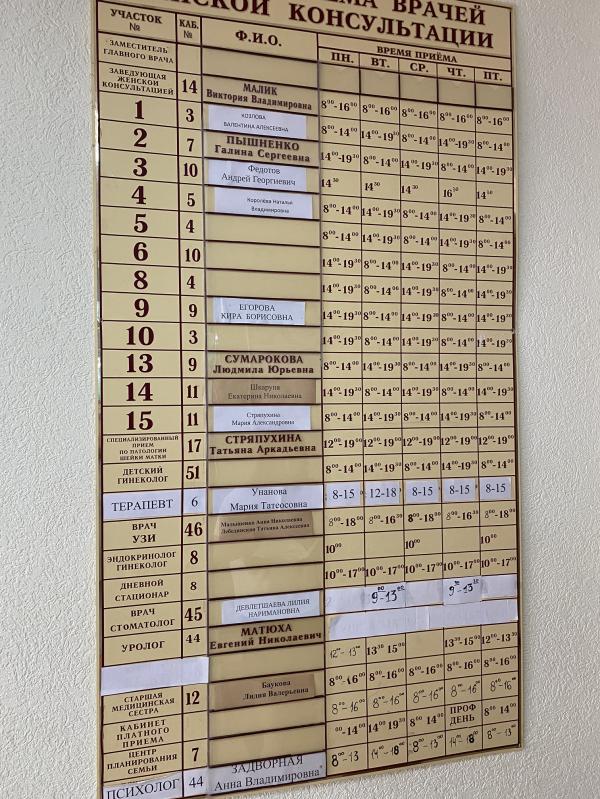 ЁМА ВРАЧЕЙ
НСКОЙ КОНСУЛЬТАЦИИ
УЧАСТОК № КАБ. № Ф.И.О. ВРЕМЯ ПРИЁМА
ПН. ВТ. СР. ЧТ. ПТ.
ЗАМЕСТИТЕЛЬ
ГЛАВНОГО ВРАЧА
ЗАВЕДУЮЩАЯ
ЖЕНСКОЙ
КОНСУЛЬТАЦИЕЙ
14 МАЛИК
Виктория Владимировна
8⁰⁰-16⁰⁰ 8⁰⁰-16⁰⁰ 8⁰⁰-16⁰⁰ 8⁰⁰-16⁰⁰ 8⁰⁰-16⁰⁰
1 3 КОЗЛОВА
ВАЛЕНТИНА АЛЕКСЕЕВНА
8⁰⁰-14⁰⁰ 14⁰⁰-19³⁰ 8⁰⁰-14⁰⁰ 14⁰⁰-19³⁰ 8⁰⁰-14⁰⁰
2 7 ПЫШНЕНКО
Галина Сергеевна
14⁰⁰-19³⁰ 8⁰⁰-14⁰⁰ 14⁰⁰-19³⁰ 8⁰⁰-14⁰⁰ 14⁰⁰-19³⁰
3 10 Федотов
Андрей Георгиевич
14³⁰ 14³⁰ 14³⁰ 16³⁰ 14³⁰
4 5 Королева Наталья
Владимировна
8⁰⁰-14⁰⁰ 14⁰⁰-19³⁰ 8⁰⁰-14⁰⁰ 14⁰⁰-19³⁰ 8⁰⁰-14⁰⁰
5 4 8⁰⁰-14⁰⁰ 14⁰⁰-19³⁰ 8⁰⁰-14⁰⁰ 14⁰⁰-19³⁰ 8⁰⁰-14⁰⁰
6 10 14⁰⁰-19³⁰ 8⁰⁰-14⁰⁰ 14⁰⁰-19³⁰ 8⁰⁰-14⁰⁰ 14⁰⁰-19³⁰
8 4 14⁰⁰-19³⁰ 8⁰⁰-14⁰⁰ 14⁰⁰-19³⁰ 8⁰⁰-14⁰⁰ 14⁰⁰-19³⁰
9 9 ЕГОРОВА
КИРА БОРИСОВНА
14⁰⁰-19³⁰ 8⁰⁰-14⁰⁰ 14⁰⁰-19³⁰ 8⁰⁰-14⁰⁰ 14⁰⁰-19³⁰
10 3 14⁰⁰-19³⁰ 8⁰⁰-14⁰⁰ 14⁰⁰-19³⁰ 8⁰⁰-14⁰⁰ 14⁰⁰-19³⁰
13 9 СУМАРОКОВА
Людмила Юрьевна
8⁰⁰-14⁰⁰ 14⁰⁰-19³⁰ 8⁰⁰-14⁰⁰ 14⁰⁰-19³⁰ 8⁰⁰-14⁰⁰
14 11 Шкарупа
Екатерина Николаевна
14⁰⁰-19³⁰ 8⁰⁰-14⁰⁰ 14⁰⁰-19³⁰ 8⁰⁰-14⁰⁰ 14⁰⁰-19³⁰
15 11 Стряпухина
Мария Александровна
8⁰⁰-14⁰⁰ 14⁰⁰-19³⁰ 8⁰⁰-14⁰⁰ 14⁰⁰-19³⁰ 8⁰⁰-14⁰⁰
СПЕЦИАЛИЗИРОВАННЫЙ
ПРИЕМ
ПО ПАТОЛОГИИ
ШЕЙКИ МАТКИ
17 СТРЯПУХИНА
Татьяна Аркадьевна
12⁰⁰-19⁰⁰ 12⁰⁰-19⁰⁰ 12⁰⁰-19⁰⁰ 12⁰⁰-19⁰⁰ 12⁰⁰-19⁰⁰
ДЕТСКИЙ
ГИНЕКОЛОГ
51 8⁰⁰-14⁰⁰ 14⁰⁰-19³⁰ 8⁰⁰-14⁰⁰ 14⁰⁰-19³⁰ 8⁰⁰-14⁰⁰
ТЕРАПЕВТ 6 Унанова
Мария Татеосовна
8-15 12-18 8-15 8-15 8-15
ВРАЧ
УЗИ
46 Малышенко Анна Николаевна
Лебединская Татьяна Алексеевна
8⁰⁰-18⁰⁰ 8⁰⁰-16³⁰ 8⁰⁰-18⁰⁰ 8⁰⁰-16³⁰ 8⁰⁰-18⁰⁰
ЭНДОКРИНОЛОГ
ГИНЕКОЛОГ
8 10⁰⁰ 10⁰⁰ 10⁰⁰
ДНЕВНОЙ
СТАЦИОНАР
8 10⁰⁰-17⁰⁰ 10⁰⁰-17⁰⁰ 10⁰⁰-17⁰⁰ 10⁰⁰-17⁰⁰ 10⁰⁰-17⁰⁰
ВРАЧ
СТОМАТОЛОГ
45 ДЕВЛЕТШАЕВА ЛИЛИЯ
НАРИМАНОВНА
9⁰⁰-13⁰⁰ 9³⁰-13³⁰
УРОЛОГ 44 МАТЮХА
Евгений Николаевич
12⁰⁰-13⁰⁰ 13³⁰ 15⁰⁰ 13³⁰-15⁰⁰ 12⁰⁰-13³⁰
8⁰⁰-16⁰⁰ 8⁰⁰-16⁰⁰ 8⁰⁰-16⁰⁰ 8⁰⁰-16⁰⁰ 8⁰⁰-16⁰⁰
СТАРШАЯ
МЕДИЦИНСКАЯ
СЕСТРА
12 Баукова
Лилия Валерьевна
8⁰⁰-16⁰⁰ 8⁰⁰-16⁰⁰ 8⁰⁰-16⁰⁰ 8⁰⁰-16⁰⁰ 8⁰⁰-16⁰⁰
КАБИНЕТ
ПЛАТНОГО
ПРИЕМА
⁰⁰-14⁰⁰ 14⁰⁰ 19³⁰ 8⁰⁰ 14⁰⁰ ПРОФ ДЕНЬ 8⁰⁰ 14⁰⁰
ЦЕНТР
ПЛАНИРОВАНИЯ
СЕМЬИ
7 8⁰⁰-13 14⁰⁰-18⁰⁰ 8⁰⁰-13⁰⁰ 14⁰⁰-18⁰⁰ 8⁰⁰-13⁰⁰
ПСИХОЛОГ 44 ЗАДВОРНАЯ
Анна Владимировна